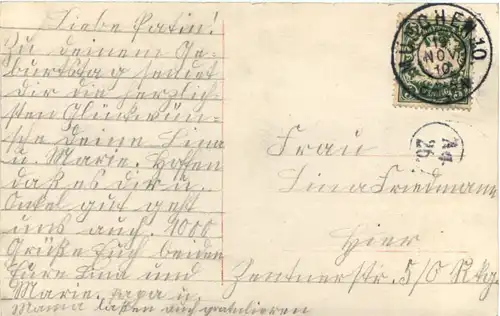 Liebe Patin!
Zu deinem Ge-
burtstag sendet
dir die herzlich-
sten Glückwün-
sche deine Lina
u. Marie. Hofen
daß es dir u.
Onkel gut geht
uns auch. 1000
Grüße Euch beiden
Eure Lina und
Marie. Papa u.
Mama laßen auch gratulieren
MÜNCHEN 10
NOV
10
A4
26
Frau
Lina Friedmann
Hier
Zentnerstr. 5/0 Rtg.